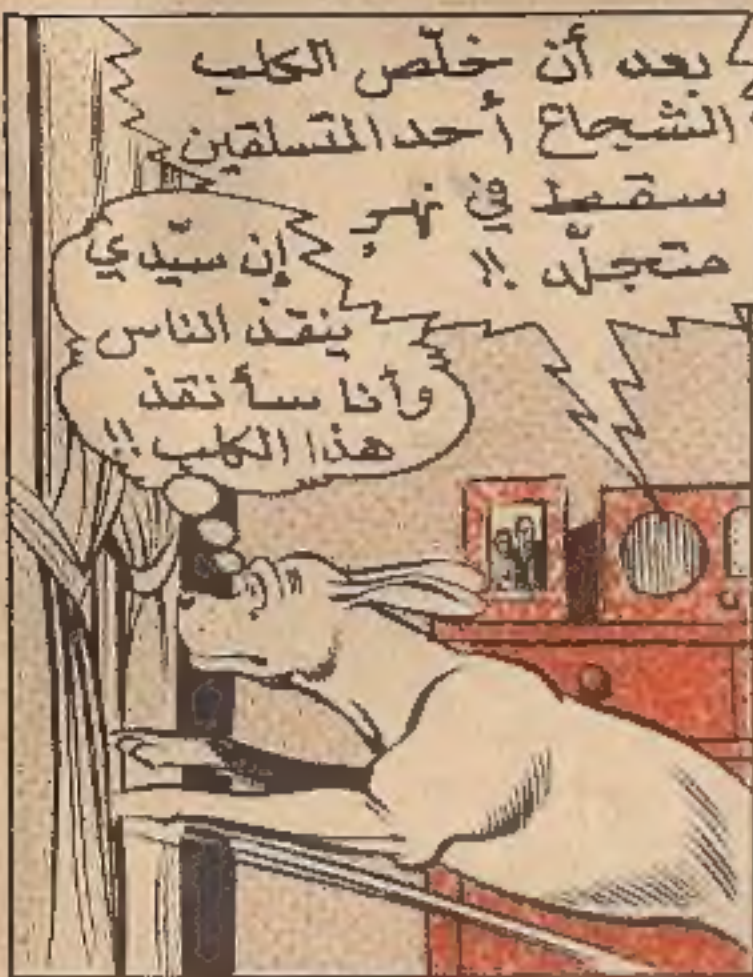 بعد أن خلّص الكلب
الشجاع أحد المتسلقين
سقط في نهر
متجلّد !!
إن سيّدي
ينقذ الناس
وأنا سأنقذ
هذا الكلب !!